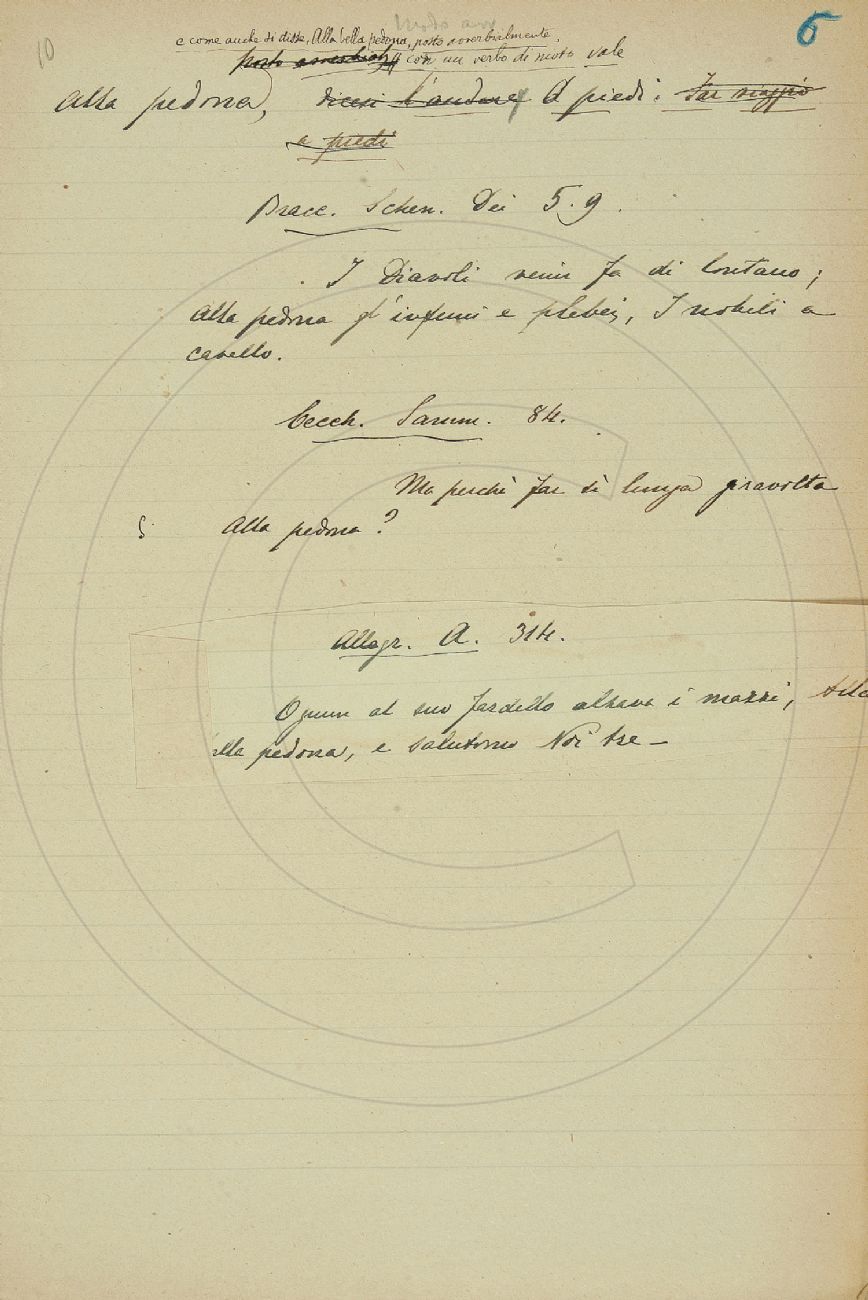 10
6
Modo avv
e come anche si disse, Alla bella pedona, posto avverbialmente
posto avverbialm con un verbo di moto vale
Alla pedona, dicesi l'andare A piedi: Far viaggio
a piedi
Bracc. Schern. Dei 5.9.
I Diavoli venir fa di lontano;
Alla pedona gl'infimi e plebei, I nobili a
cavallo.
Cecch. Samm. 84.
Ma perchè far sì lunga giravolta
Alla pedona?
Allegr. A. 314.
Ognun al suo fardello alzava i mazzi,
alla pedona, e salutorno Noi tre —